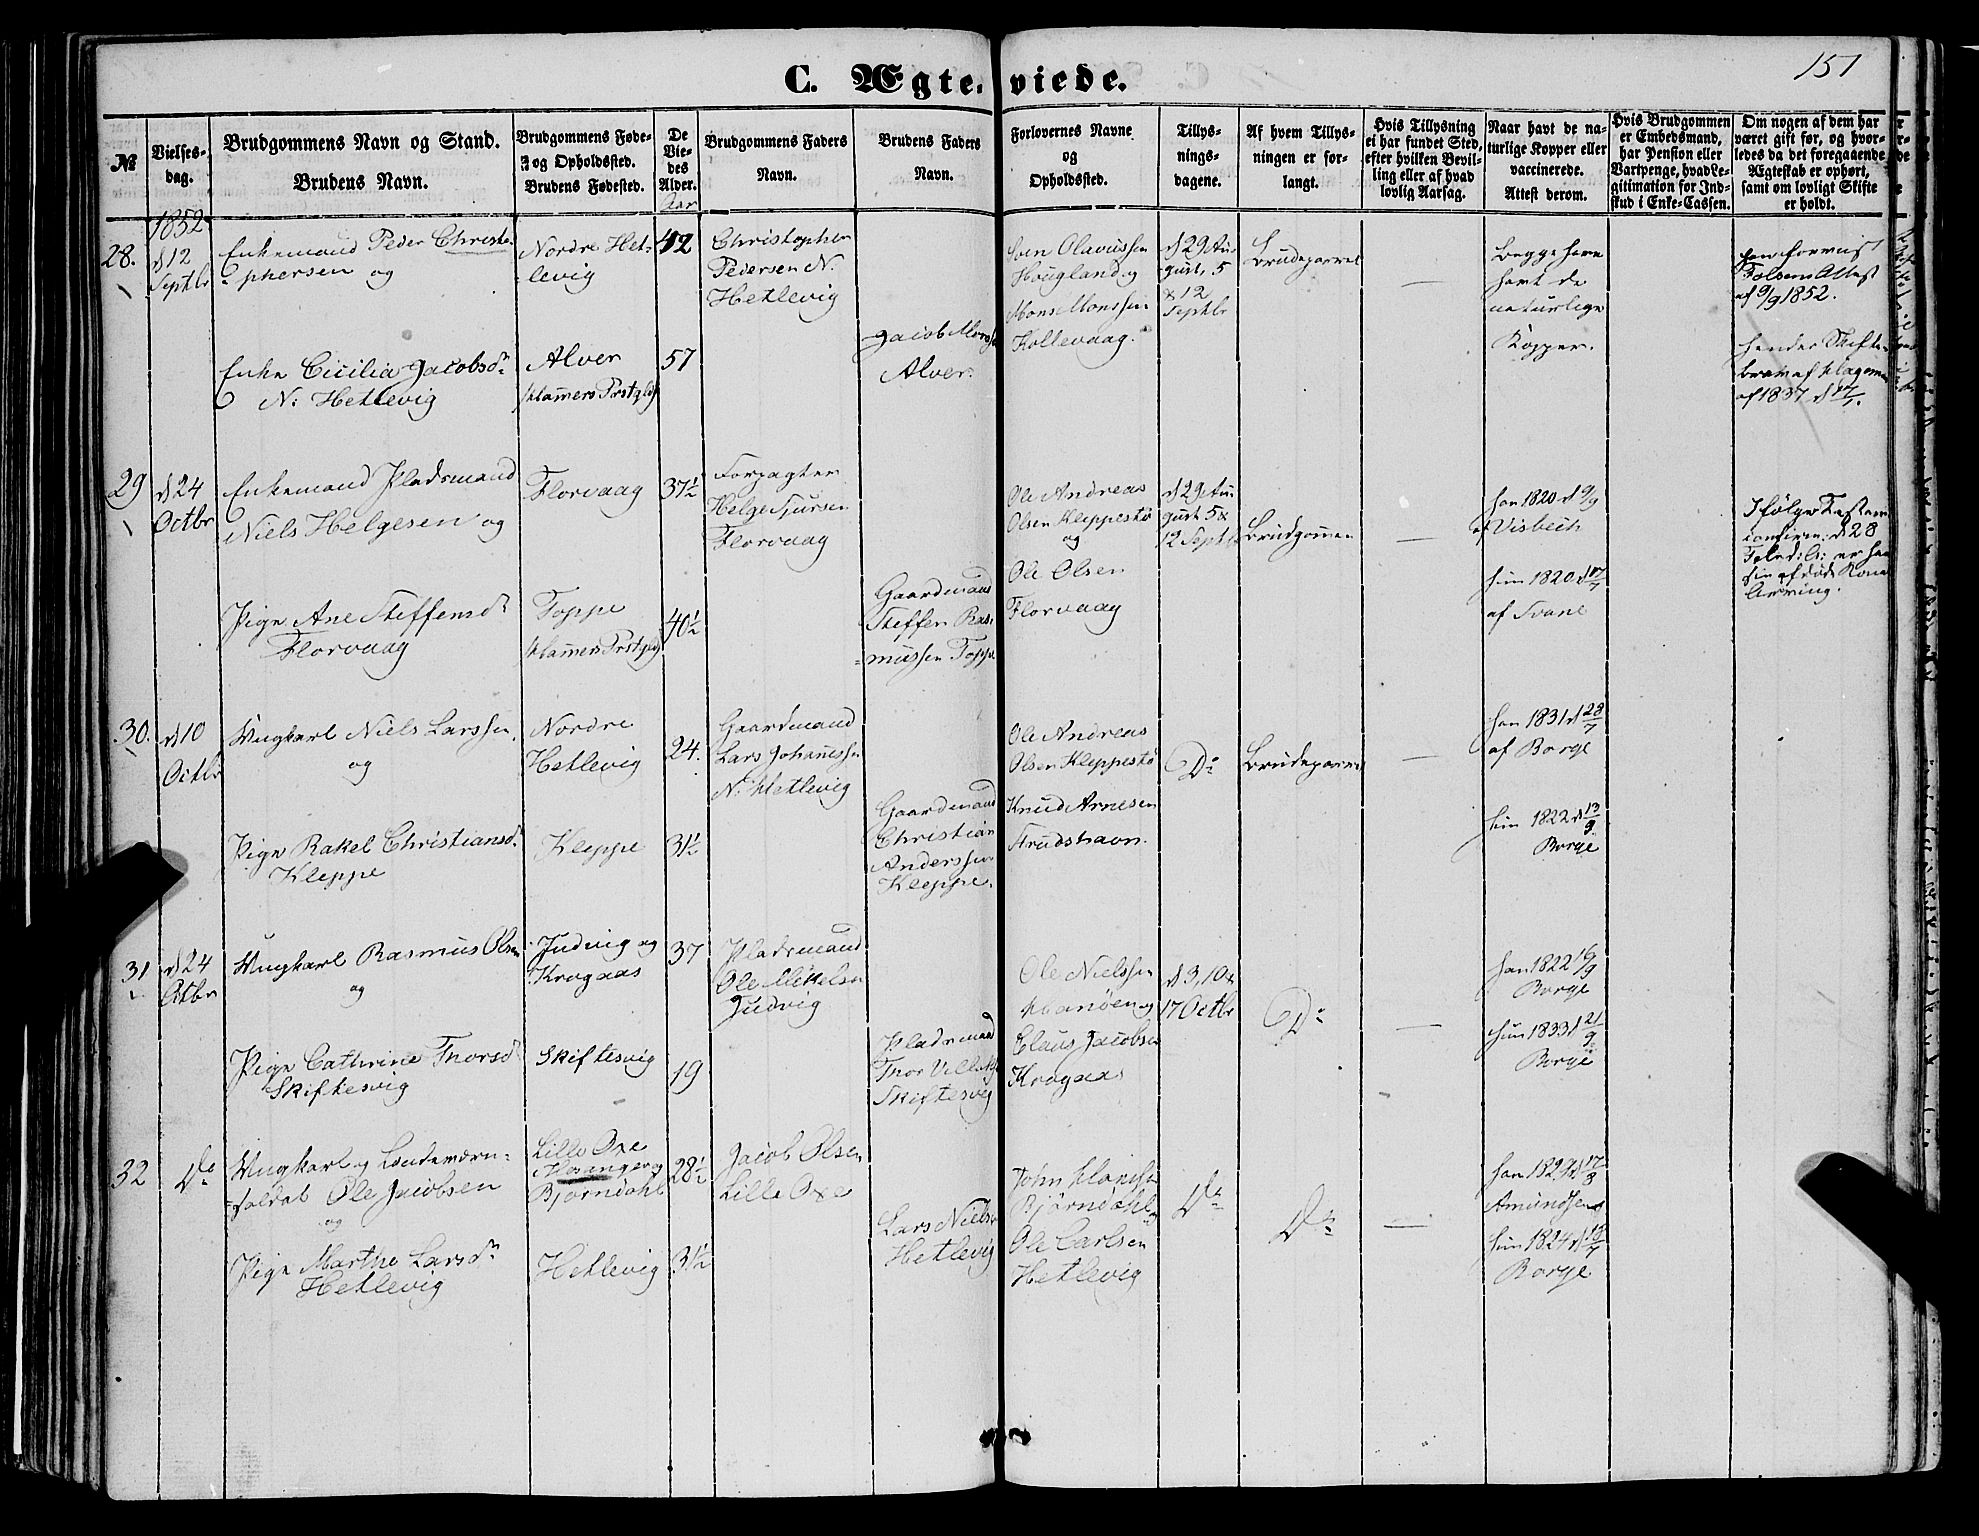 151
C. Ægteviede.
№
Vielses-
dag.
Brudgommens Navn og Stand.
Brudens Navn.
Brudgommens Føde-
og Opholdssted.
Brudens Fødested.
De
Vie-
des
Alder.
Aar
Brudgommens Faders
Navn.
Brudens Faders
Navn.
Forlovernes Navne
og
Opholdssted.
Tillys-
nings-
dagene.
Af hvem Tillys-
ningen er for-
langt.
Hvis Tillysning
ei har fundet Sted,
efter hvilken Bevil-
ling eller af hvad
lovlig Aarsag.
Naar havt de na-
turlige Kopper eller
vaccinerede.
Attest derom.
Hvis Brudgommen
er Embedsmand,
har Pension eller
Vartpenge, hvad Le-
gitimation for Ind-
skud i Enke-Cassen.
Om nogen af dem har
været gift før, og hvor-
ledes da det foregaaende
Ægteskab er ophørt,
samt om lovligt Skifte
er holdt.
1852
28.
d 12
Septbr
Enkemand Peder Christo-
phersen og
Nordre Het-
levig
42
Christopher
Pedersen N.
Hetlevig
Sven Olavussen
Hougland og
Mons Monssen
Kollevaag.
d 29 Au-
gust, 5
& 12
Septbr
Brudeparret
—
Begge have
havt de
naturlige
Kopper.
Attest
af 9/9 1852.
Enke Cicilia Jacobsdr
N: Hetlevig
Alver
Hammers Prstgld
57
Jacob
Alver.
hendes Skifte-
brev af
af 1837 d 17/1.
29
d 24
Octbr
Enkemand Pladsmand
Niels Helgesen og
Florvaag
37½
Forpagter
Helge Sjursen
Florvaag
Ole Andreas
Olsen Kleppestø
og
Ole Olsen
Florvaag
d 29 Au-
gust 5 &
12 Septbr
Brudgomen
—
han 1820 d 9/9
af Visbech
hun 1820 d 17/7
af Svane
Ifølge
d 28
er han
af døde Kone
Pige Ane Steffensdr
Florvaag
Toppe
Hammers Prstgld
40½
Gaardmand
Steffen Ras-
mussen Toppe
30.
d 10
Octbr
Ungkarl Niels Larssen
og
Nordre
Hetlevig
24.
Gaardmand
Lars Johanessen
N. Hetlevig
Ole Andreas
Olsen Kleppestø
Knud Arnesen
Strudshavn.
Do
Brudeparret
—
han 1831 d 28/7
af Borge
hun 1822 d 13/9
Borge
Pige Rakel Christiansdr
Kleppe
Kleppe
31½
Gaardmand
Christian
Anderssen
Kleppe.
31
d 24
Octbr
Ungkarl Rasmus Olsen
og
Judvig og
Krogaas
37
Pladsmand
Ole Mikelsen
Judvig
Ole Nielssen
Hanøen og
Claus Jacobsen
Krogaas
d 3, 10 &
17 Octbr
Do
—
han 1822 16/9
Borge
hun 1833 d 21/9
Borge
Pige Cathrine Thorsdr
Skiftesvig
Skiftesvig
19
Pladsmand
Thor
Skiftesvig
32
Do
Ungkarl og Landeværn-
soldat Ole Jacobsen
og
Lille Oxe
Hosanger og
Bjørndahl
28½
Jacob Olsen
Lille Oxe
John
Bjørndahl og
Ole Carlsen
Hetlevig
Do
Do
—
han 1829 d 17/8
Amundsen
hun 1824 d 13/7
Borge
Pige Marthe Larsdr
Hetlevig
Hetlevig
31½
Lars Nielsen
Hetlevig